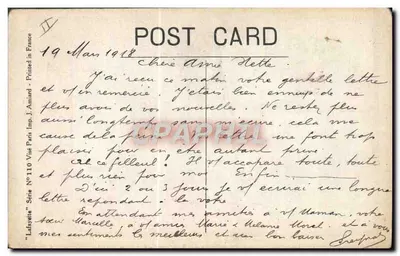 POST CARD
19 Mars 1918
Chère Amie Hette
J'ai reçu ce matin votre gentille lettre
et v/ en remercie. J'étais bien ennuyé de ne
plus avoir de vos nouvelles. Ne restez plus
aussi longtemps sans m'écrire, cela me
cause de la peine. Vos lettres me font trop
plaisir pour en être autant privé.
Ah ce filleul! Il v/ accapare toute, toute
et plus rien pour moi. Enfin
D'ici 2 ou 3 jours je v/ écrirai une longue
lettre répondant à la votre
En attendant mes amitiés à v/ Maman, votre
sœur Marcelle à v/ amies Marie & Melanie Morel. et à vous
mes sentiments les meilleurs et un bon baiser
"Lafayette" Série No 110 Visé Paris Imp. J. Amiard - Printed in France